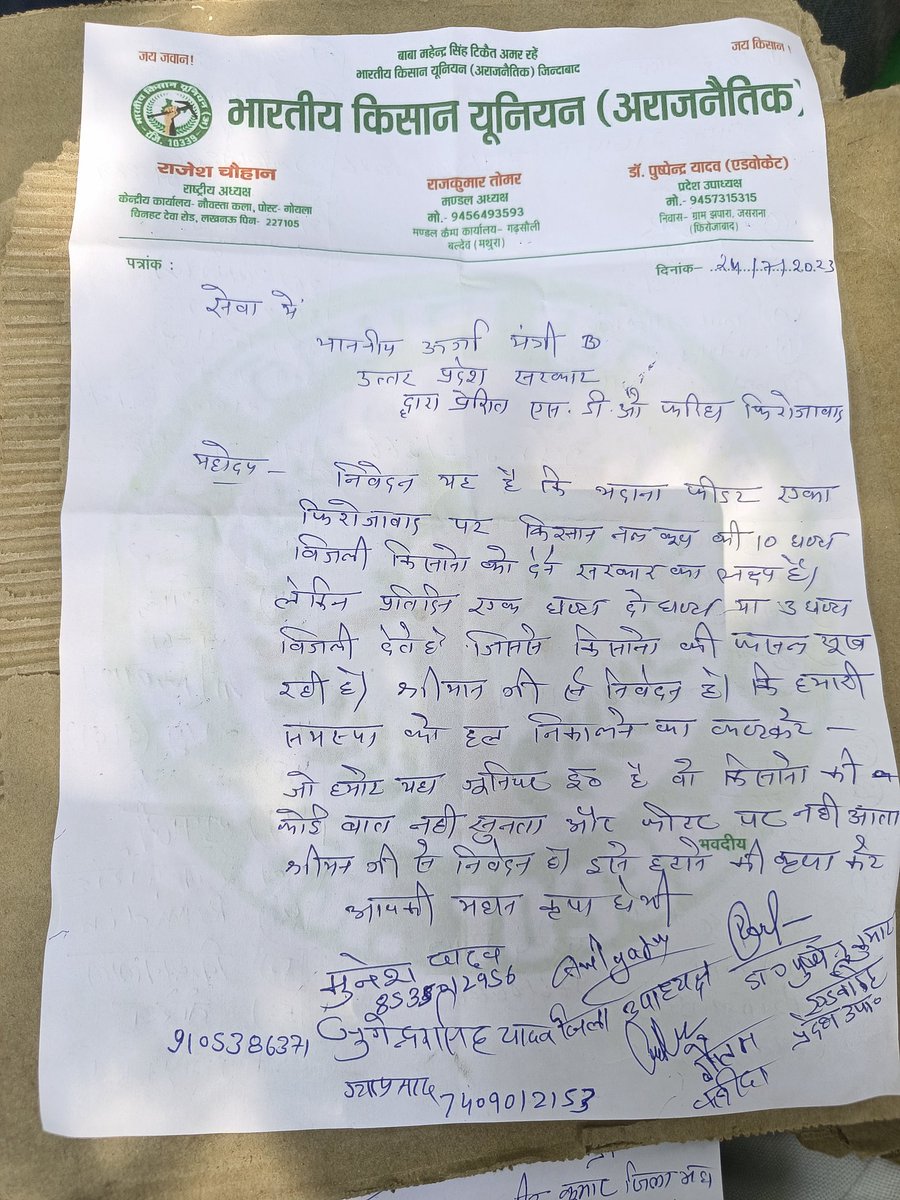 जय जवान!
बाबा महेन्द्र सिंह टिकैत अमर रहें
जय किसान।
भारतीय किसान यूनियन (अराजनैतिक) जिन्दाबाद
भारतीय किसान यूनियन (अराजनैतिक)
भारतीय किसान यूनियन (अ)
रजि. 10339
राजेश चौहान
राष्ट्रीय अध्यक्ष
केन्द्रीय कार्यालय- नौवस्ता कला, पोस्ट- गोयला
चिनहट देवा रोड, लखनऊ पिन- 227105
राजकुमार तोमर
मण्डल अध्यक्ष
मो.- 9456493593
मण्डल कैम्प कार्यालय- गढ़सौली
बल्देव (मथुरा)
डॉ. पुष्पेन्द्र यादव (एडवोकेट)
प्रदेश उपाध्यक्ष
मो.- 9457315315
निवास- ग्राम झपारा, जसराना
(फिरोजाबाद)
पत्रांक :
दिनांक- 24/7/2023
सेवा में
माननीय ऊर्जा मंत्री
उत्तर प्रदेश सरकार
द्वारा प्रेषित एस.डी.ओ फरिहा फिरोजावाद
महोदय -
निवेदन यह है कि भदाना फीडर एका
फिरोजावाद पर किसान नलकूप की 10 घण्टे
विजली किसानो को देने सरकार का लक्ष्य है।
लेकिन प्रतिदिन एक घण्टा दो घण्टा या 3 घण्टा
विजली देते है जिससे किसानो की फसल सूख
रही है। श्रीमान जी से निवेदन है। कि हमारी
समस्या को हल निकालने का कष्ट करे -
जो हमारे यहा जूनियर इ० है वो किसानो की
कोई बात नही सुनता और फोरट पर नही आता
श्रीमान जी से निवेदन है। इसे हटाने की कृपा करे
भवदीय
आपकी महान कृपा होगी
मुनेश यादव
जिला उपाध्यक्ष
डा० पुष्पेन्द्र कुमार
एडवोकेट
प्रदेश उपा०
9105386371
यादव
गौतम
7409012153
कुमार जिला